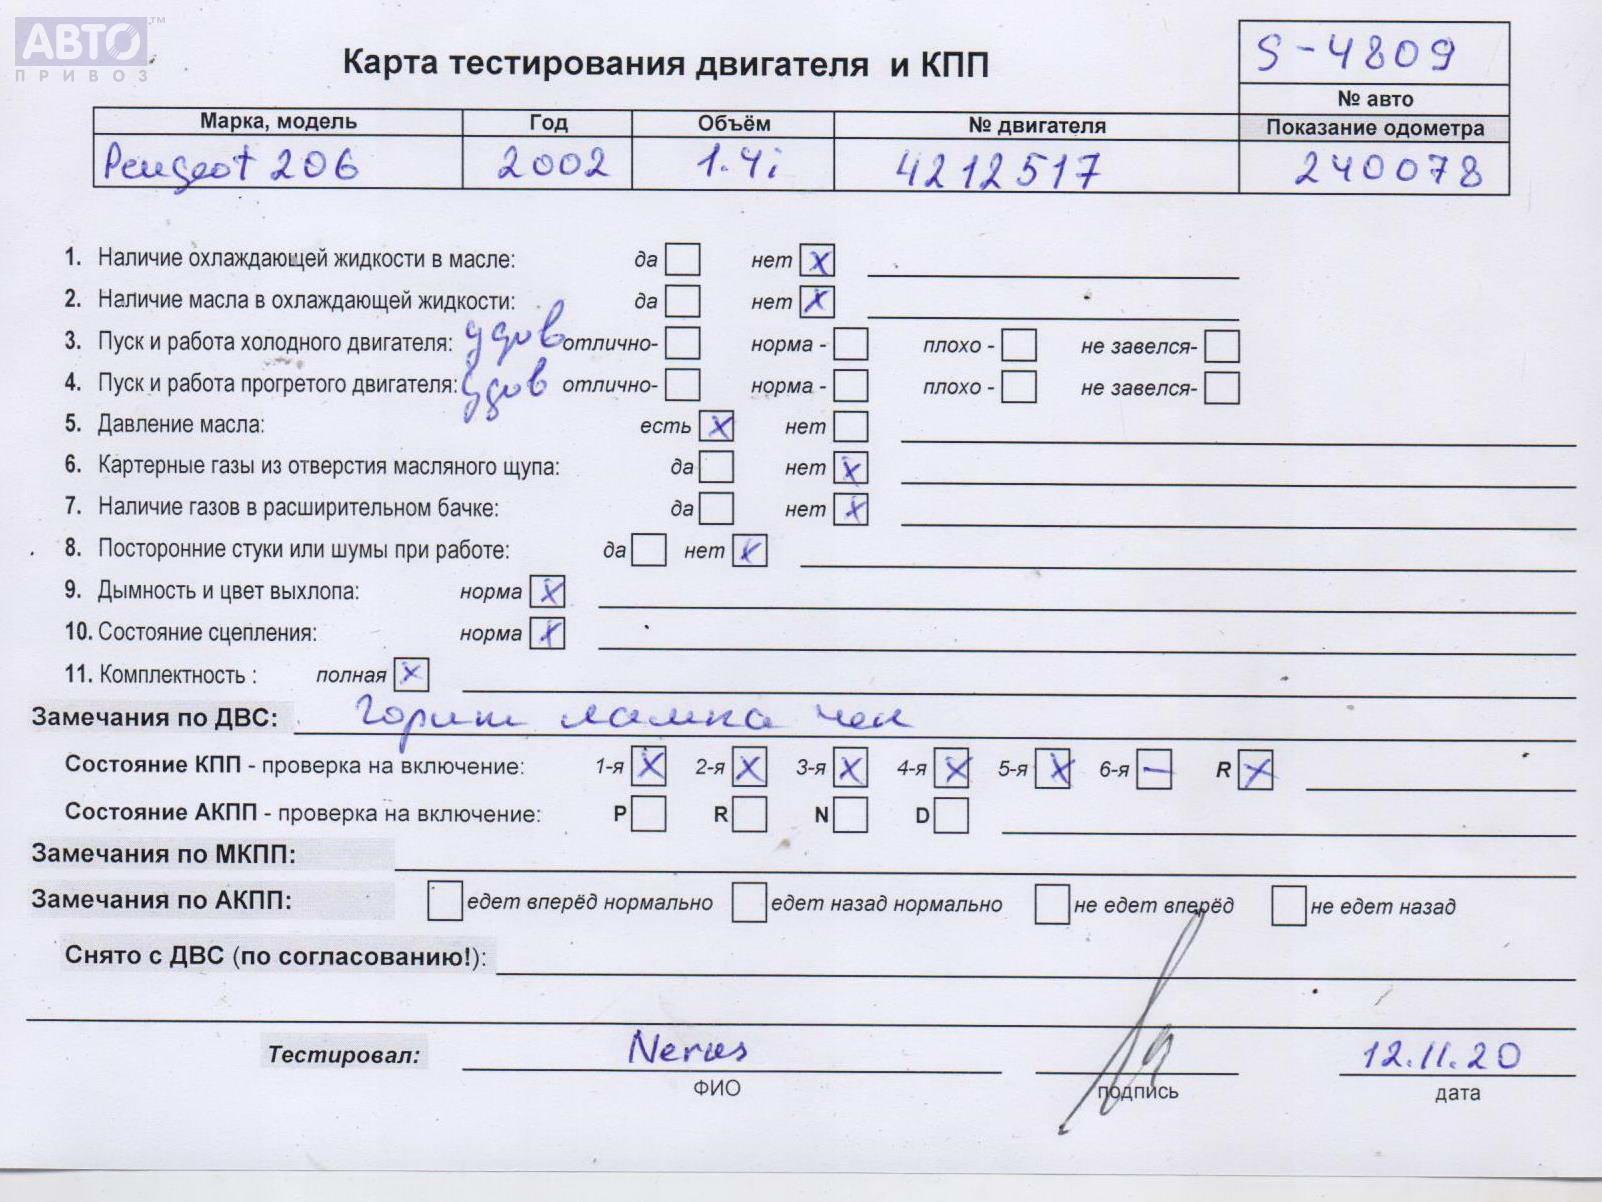 АВТО™
ПРИВОЗ
S-4809
Карта тестирования двигателя и КПП
№ авто
Марка, модель Год Объём № двигателя Показание одометра
Peugeot 206 2002 1.4i 4212517 240078
1. Наличие охлаждающей жидкости в масле: да нет X
2. Наличие масла в охлаждающей жидкости: да нет X
3. Пуск и работа холодного двигателя: удов отлично- норма - плохо - не завелся-
4. Пуск и работа прогретого двигателя: удов отлично- норма - плохо - не завелся-
5. Давление масла: есть X нет
6. Картерные газы из отверстия масляного щупа: да нет X
7. Наличие газов в расширительном бачке: да нет X
8. Посторонние стуки или шумы при работе: да нет X
9. Дымность и цвет выхлопа: норма X
10. Состояние сцепления: норма X
11. Комплектность : полная X
Замечания по ДВС: Горит лампа чек
Состояние КПП - проверка на включение: 1-я X 2-я X 3-я X 4-я X 5-я X 6-я — R X
Состояние АКПП - проверка на включение: P R N D
Замечания по МКПП:
Замечания по АКПП: едет вперёд нормально едет назад нормально не едет вперёд не едет назад
Снято с ДВС (по согласованию!):
Тестировал: 12.11.20
ФИО подпись дата